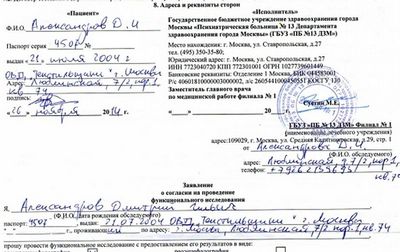 8. Адреса и реквизиты сторон
«Пациент»
«Исполнитель»
Ф.И.О. Александров Д.И
Паспорт серия 4507
выдан 21 июля 2004 г
ОВД "Текстильщики" г. Москвы
Адрес: Люблинская, 7/2, кор.1,
кв. 74
26 ноября 2014 г.
Государственное бюджетное учреждение здравоохранения города
Москвы «Психиатрическая больница № 13 Департамента
здравоохранения города Москвы» (ГБУЗ «ПБ № 13 ДЗМ»)
Место нахождения: г. Москва, ул. Ставропольская, д.27
тел. (495) 350-35-80;
Юридический адрес: г. Москва, ул. Ставропольская, д. 27
ИНН 7723040720 КПП 772301001 ОГРН
Банковские реквизиты: Отделение 1 Москва, БИК 044583001
Заместитель главного врача
по медицинской работе филиала № 1
Сустин М.Е.
ГБУЗ «ПБ № 13 ДЗМ» Филиал № 1
(наименование лечебного учреждения)
адрес:109029, г. Москва, ул. Средняя Калитниковская, д. 29,
от Александрова Д.И.
адрес: Люблинская д.7/2, кор.1,
кв. 74
телефон:
Заявление
о согласии на проведение
функционального исследования
Я, Александров Дмитрий Ильич
(Ф.И.О., дата рождения обследуемого)
паспорт: 4507 выдан: 21.07.2004 ОВД "Текстильщики" г. Москвы
г., проживающий по адресу: г. Москва, Люблинская 7/2 кор.1, кв. 74
прошу провести функциональное исследование с предоставлением его результатов в виде: